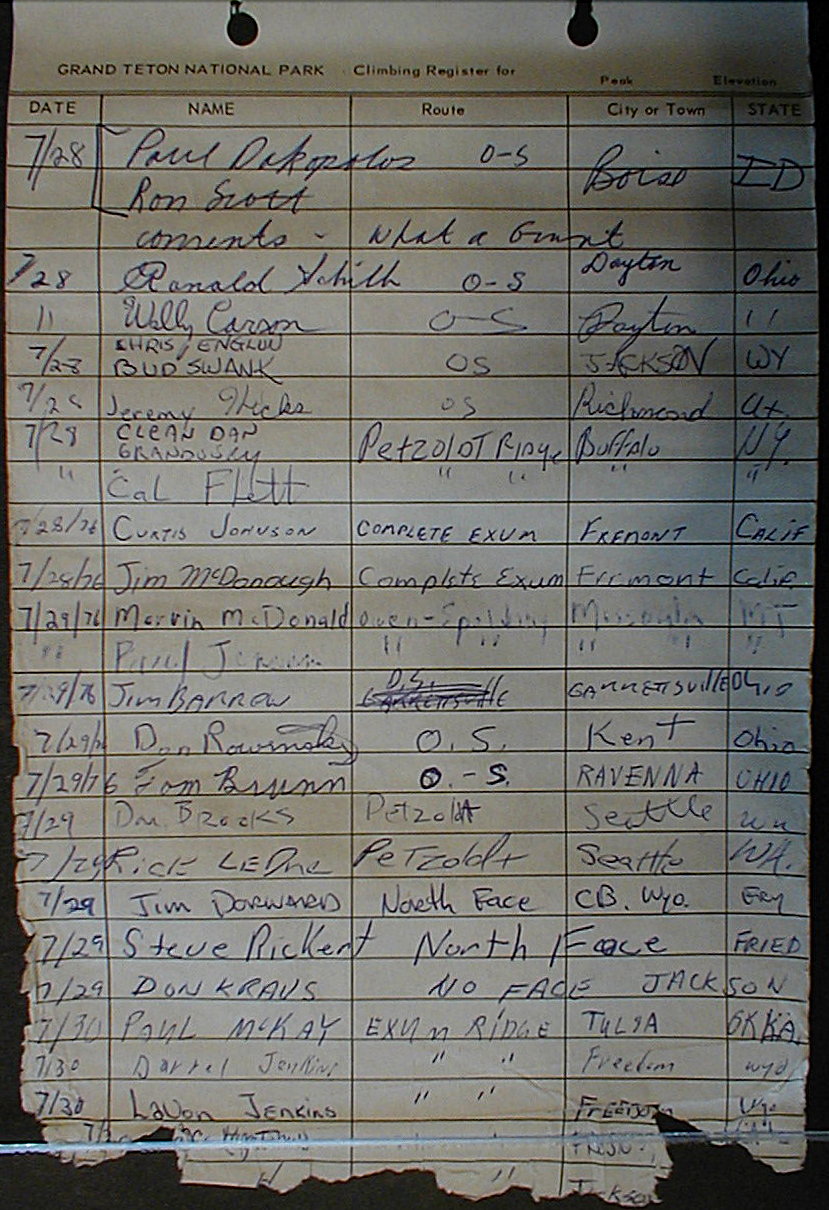 GRAND TETON NATIONAL PARK Climbing Register for Peak Elevation
DATE NAME Route City or Town STATE
7/28 Paul Dakopolos O-S Boise ID
Ron Scott
coments - what a Grunt
7/28 Ranald O-S Dayton Ohio
11 Wally Carson O-S Dayton 11
CHRIS ENGLUN
7/28 BUD SWANK OS JACKSON WY
7/28 Jeremy Hicks OS Richmond Ut.
7/28 CLEAN DAN
GRANDUSKY Petzoldt Ridge Buffalo NY.
" Cal Flett " " " "
7/28/76 Curtis Johnson COMPLETE EXUM FREMONT CALIF
7/28/76 Jim McDonough Complete Exum Fremont Calif.
7/29/76 Marvin McDonald Owen-Spalding Missoula MT
" Paul " " " " "
7/29/76 JIM BARROW O.S. GARRETTSVILLE OHIO
7/29/76 Don Rowinsky O.S. Kent Ohio
7/29/76 Tom Brunn O.-S. RAVENNA OHIO
7/29 Dan BROOKS Petzoldt Seattle Wn
7/29 RICK LEDUC PeTzoldt Seattle WA.
7/29 JIM DORWARD North Face CB. Wyo. ERY
7/29 Steve Rickert North Face FRIED
7/29 DON KRAUS NO FACE JACKSON
7/30 PAUL McKAY EXUM RIDGE TULSA OKKA.
7/30 Darrel Jenkins " " Freedom wyo
7/30 LaVon JENKINS " " FREEDOM Wyo
" Jackson